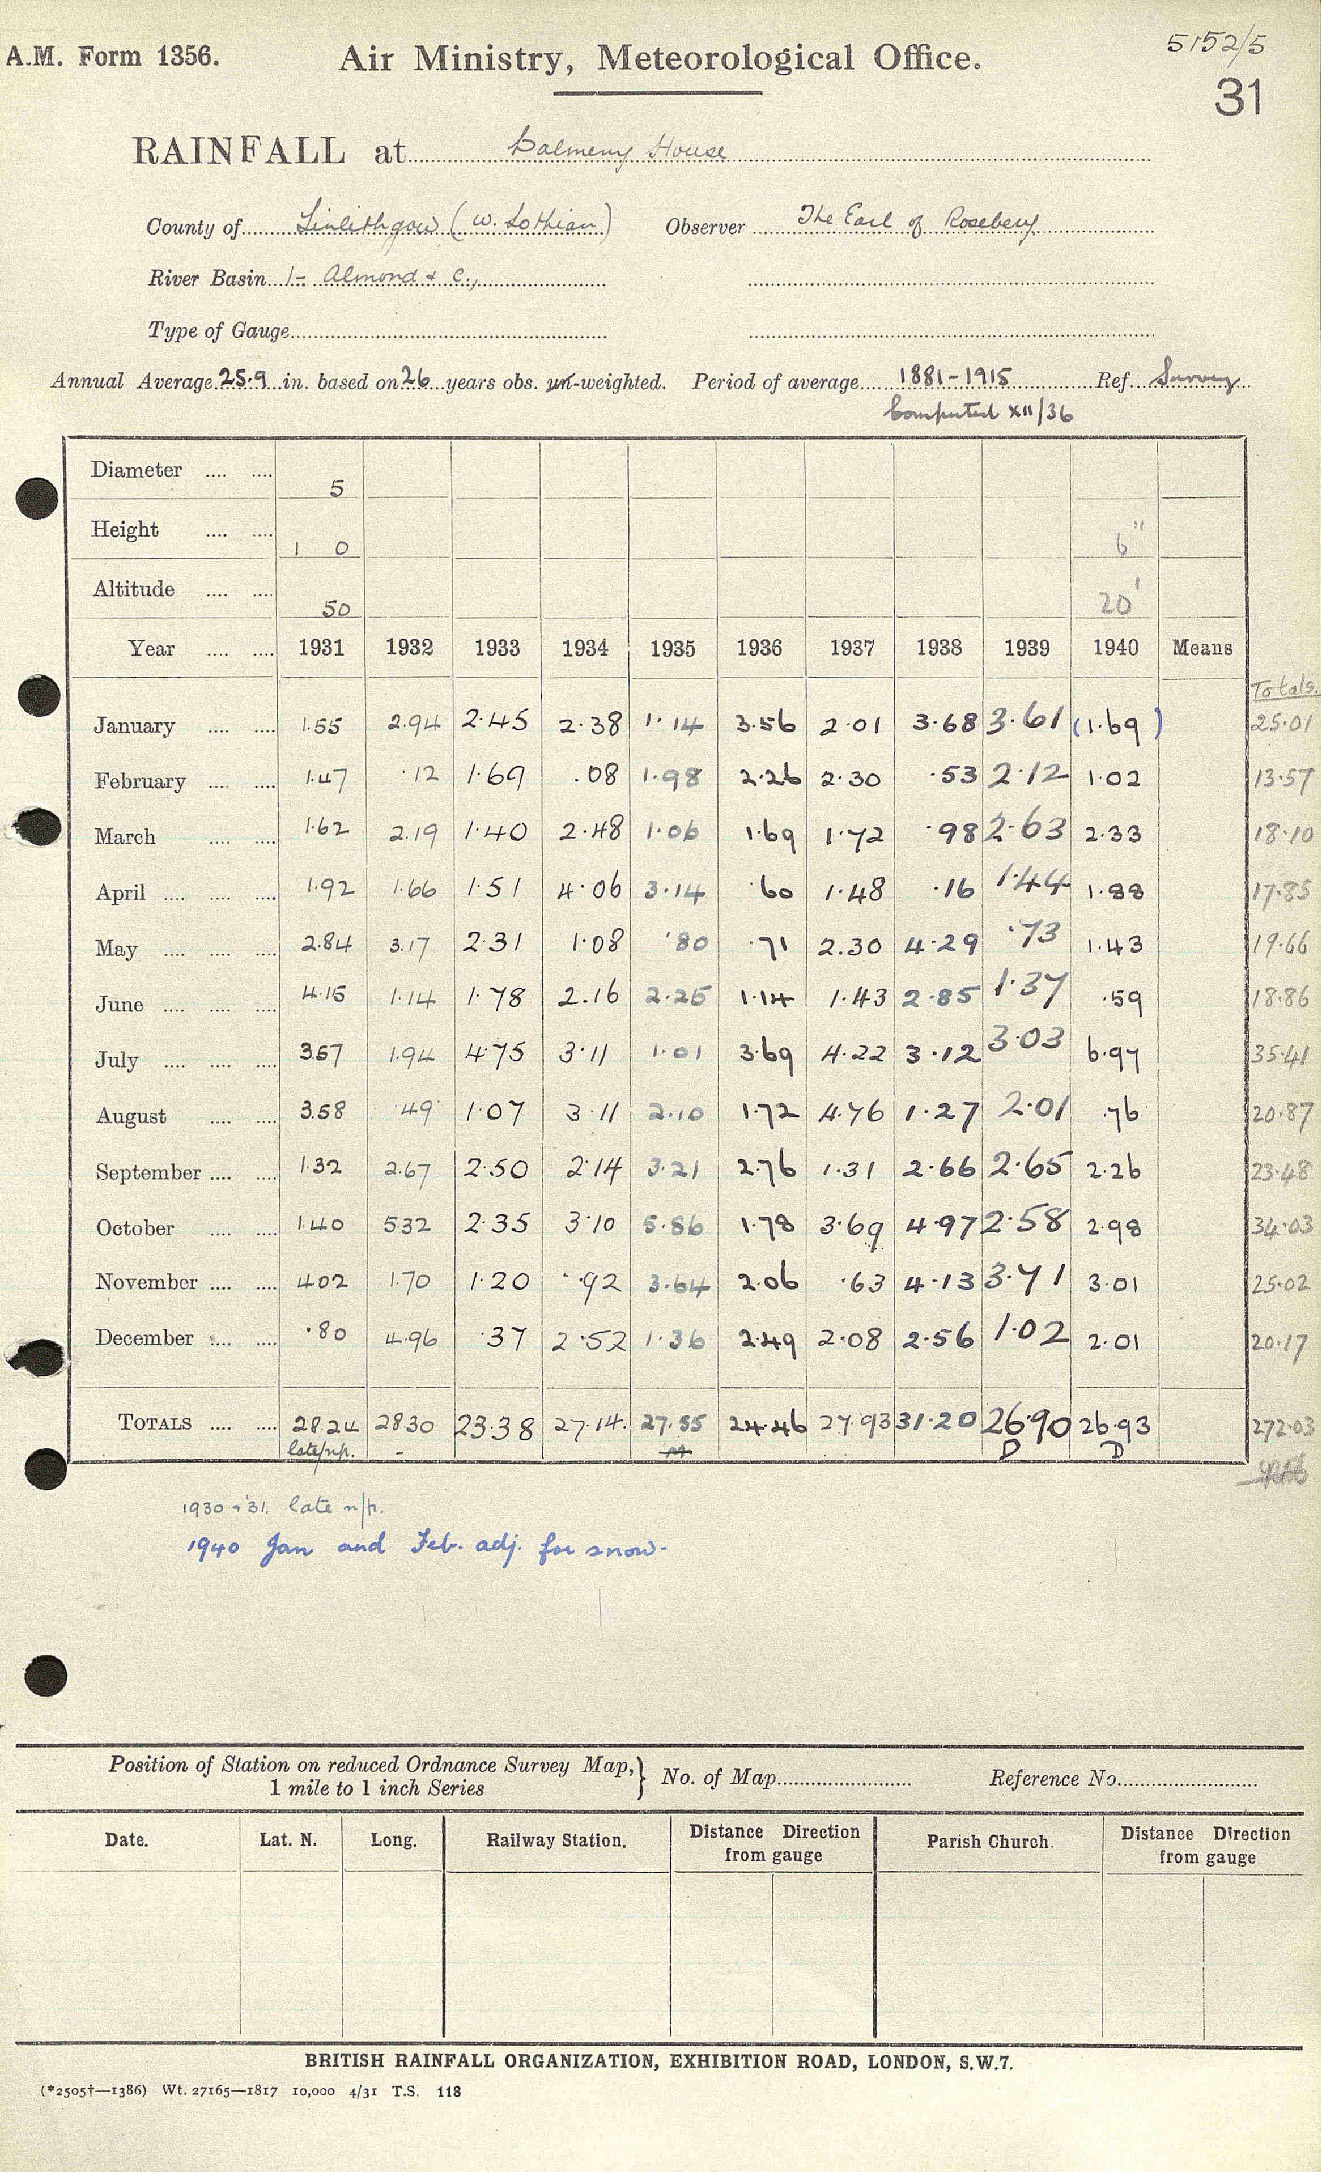 5152/5
A.M. Form 1356. Air Ministry, Meteorological Office.
31
RAINFALL at Dalmeny House
County of Linlithgow (W. Lothian) Observer The Earl of Rosebery
River Basin 1- Almond & c.,
Type of Gauge
Annual Average 25.9 in. based on 26 years obs. un-weighted. Period of average 1881-1915 Ref. Survey
Computed XII/36
Diameter .... .... 5
Height .... .... 1 0 6"
Altitude .... .... 50 20'
Year .... .... 1931 1932 1933 1934 1935 1936 1937 1938 1939 1940 Means
Totals.
January .... .... 1.55 2.94 2.45 2.38 1.14 3.56 2.01 3.68 3.61 (1.69) 25.01
February .... .... 1.47 .12 1.69 .08 1.98 2.26 2.30 .53 2.12 1.02 13.57
March .... .... 1.62 2.19 1.40 2.48 1.06 1.69 1.72 .98 2.63 2.33 18.10
April .... .... .... 1.92 1.66 1.51 4.06 3.14 .60 1.48 .16 1.44 1.88 17.85
May .... .... .... 2.84 3.17 2.31 1.08 .80 .71 2.30 4.29 .73 1.43 19.66
June .... .... .... 4.15 1.14 1.78 2.16 2.25 1.14 1.43 2.85 1.37 .59 18.86
July .... .... .... 3.57 1.94 4.75 3.11 1.01 3.69 4.22 3.12 3.03 6.97 35.41
August .... .... 3.58 .49 1.07 3.11 2.10 1.72 4.76 1.27 2.01 .76 20.87
September .... .... 1.32 2.67 2.50 2.14 3.21 2.76 1.31 2.66 2.65 2.26 23.48
October .... .... 1.40 5.32 2.35 3.10 5.86 1.78 3.69 4.97 2.58 2.98 34.03
November .... .... 4.02 1.70 1.20 .92 3.64 2.06 .63 4.13 3.71 3.01 25.02
December .... .... .80 4.96 .37 2.52 1.36 2.49 2.08 2.56 1.02 2.01 20.17
TOTALS .... .... 28.24 28.30 23.38 27.14. 27.55 24.46 27.93 31.20 26.90 26.93 272.03
late n/p. - D D
1930 & '31. late n/p.
1940 Jan and Feb. adj. for snow.
Position of Station on reduced Ordnance Survey Map, } No. of Map Reference No.
1 mile to 1 inch Series
Date. Lat. N. Long. Railway Station. Distance Direction from gauge Parish Church. Distance Direction from gauge
BRITISH RAINFALL ORGANIZATION, EXHIBITION ROAD, LONDON, S.W.7.
(*2505†—1386) Wt. 27165—1817 10,000 4/31 T.S. 118